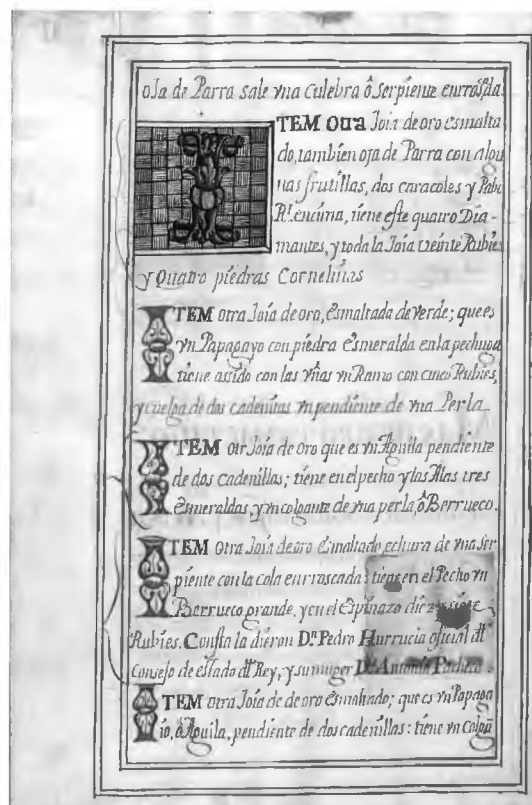 oja de Parra sale vna culebra ô serpiente enrrosada.
ITEM Otra Joia de oro esmalta
do, tambien oja de Parra con algu
nas frutillas, dos caracoles y
encima, tiene este quatro Dia-
mantes, y toda la Joia veinte Rubies
y Quatro piedras Cornelinas
ITEM otra Joia de oro, esmaltada de verde; que es
vn Papagayo con piedra esmeralda en la pechuga
tiene assido con las vñas vn Ramo con cinco Rubies,
y cuelga de dos cadenitas vn pendiente de vna Perla
ITEM otr Joia de oro que es vn Aguila pendiente
de dos cadenillas; tiene en el pecho y las Alas tres
esmeraldas, y vn colgante de vna perla, ô Berrueco.
ITEM Otra Joia de oro esmaltado echura de vna ser
piente con la cola enrroscada: tiene en el Pecho vn
Berrueco grande, y en el espinazo diez y siete
Rubies. Consta la dieron Dn Pedro Hurrucia oficial dl
Consejo de estado dl Rey, y su muger Da Antonia Pacheco
ITEM otra Joia de de oro esmaltado; que es vn Papaga
io, ô Aguila, pendiente de dos cadenillas: tiene vn colgā